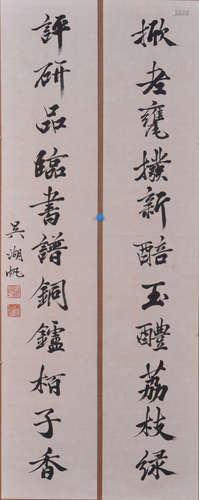 揿老甕撥新醅玉醴荔枝绿
評研品臨書譜銅鑪栢子香
吳湖帆